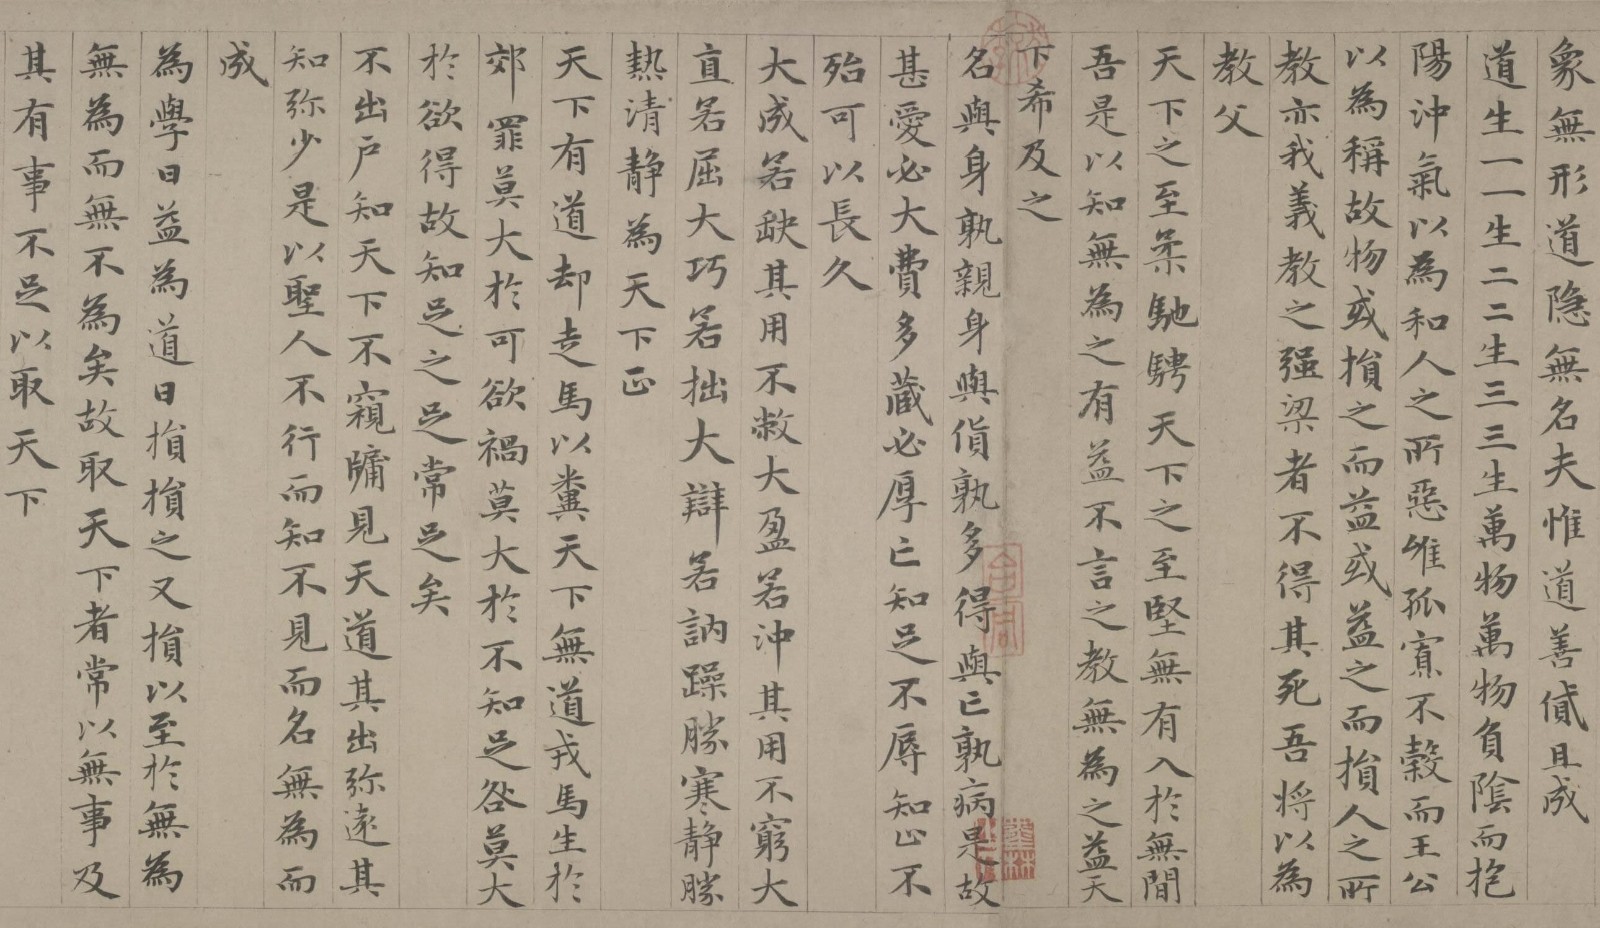 象無形道隐無名夫惟道善貸且成
道生一一生二二生三三生萬物萬物負陰而抱
陽沖氣以為和人之所惡唯孤寡不穀而王公
以為稱故物或損之而益或益之而損人之所
教亦我義教之强梁者不得其死吾将以為
教父
天下之至柔馳騁天下之至堅無有入於無間
吾是以知無為之有益不言之教無為之益天
下希及之
名與身孰親身與貨孰多得與亡孰病是故
甚愛必大費多藏必厚亡知足不辱知止不
殆可以長久
大成若缺其用不敝大盈若沖其用不窮大
直若屈大巧若拙大辯若訥躁勝寒静勝
熱清静為天下正
天下有道却走馬以糞天下無道戎馬生於
郊罪莫大於可欲禍莫大於不知足咎莫大
於欲得故知足之足常足矣
不出户知天下不窺牖見天道其出弥遠其
知弥少是以聖人不行而知不見而名無為而
成
為學日益為道日損損之又損以至於無為
無為而無不為矣故取天下者常以無事及
其有事不足以取天下